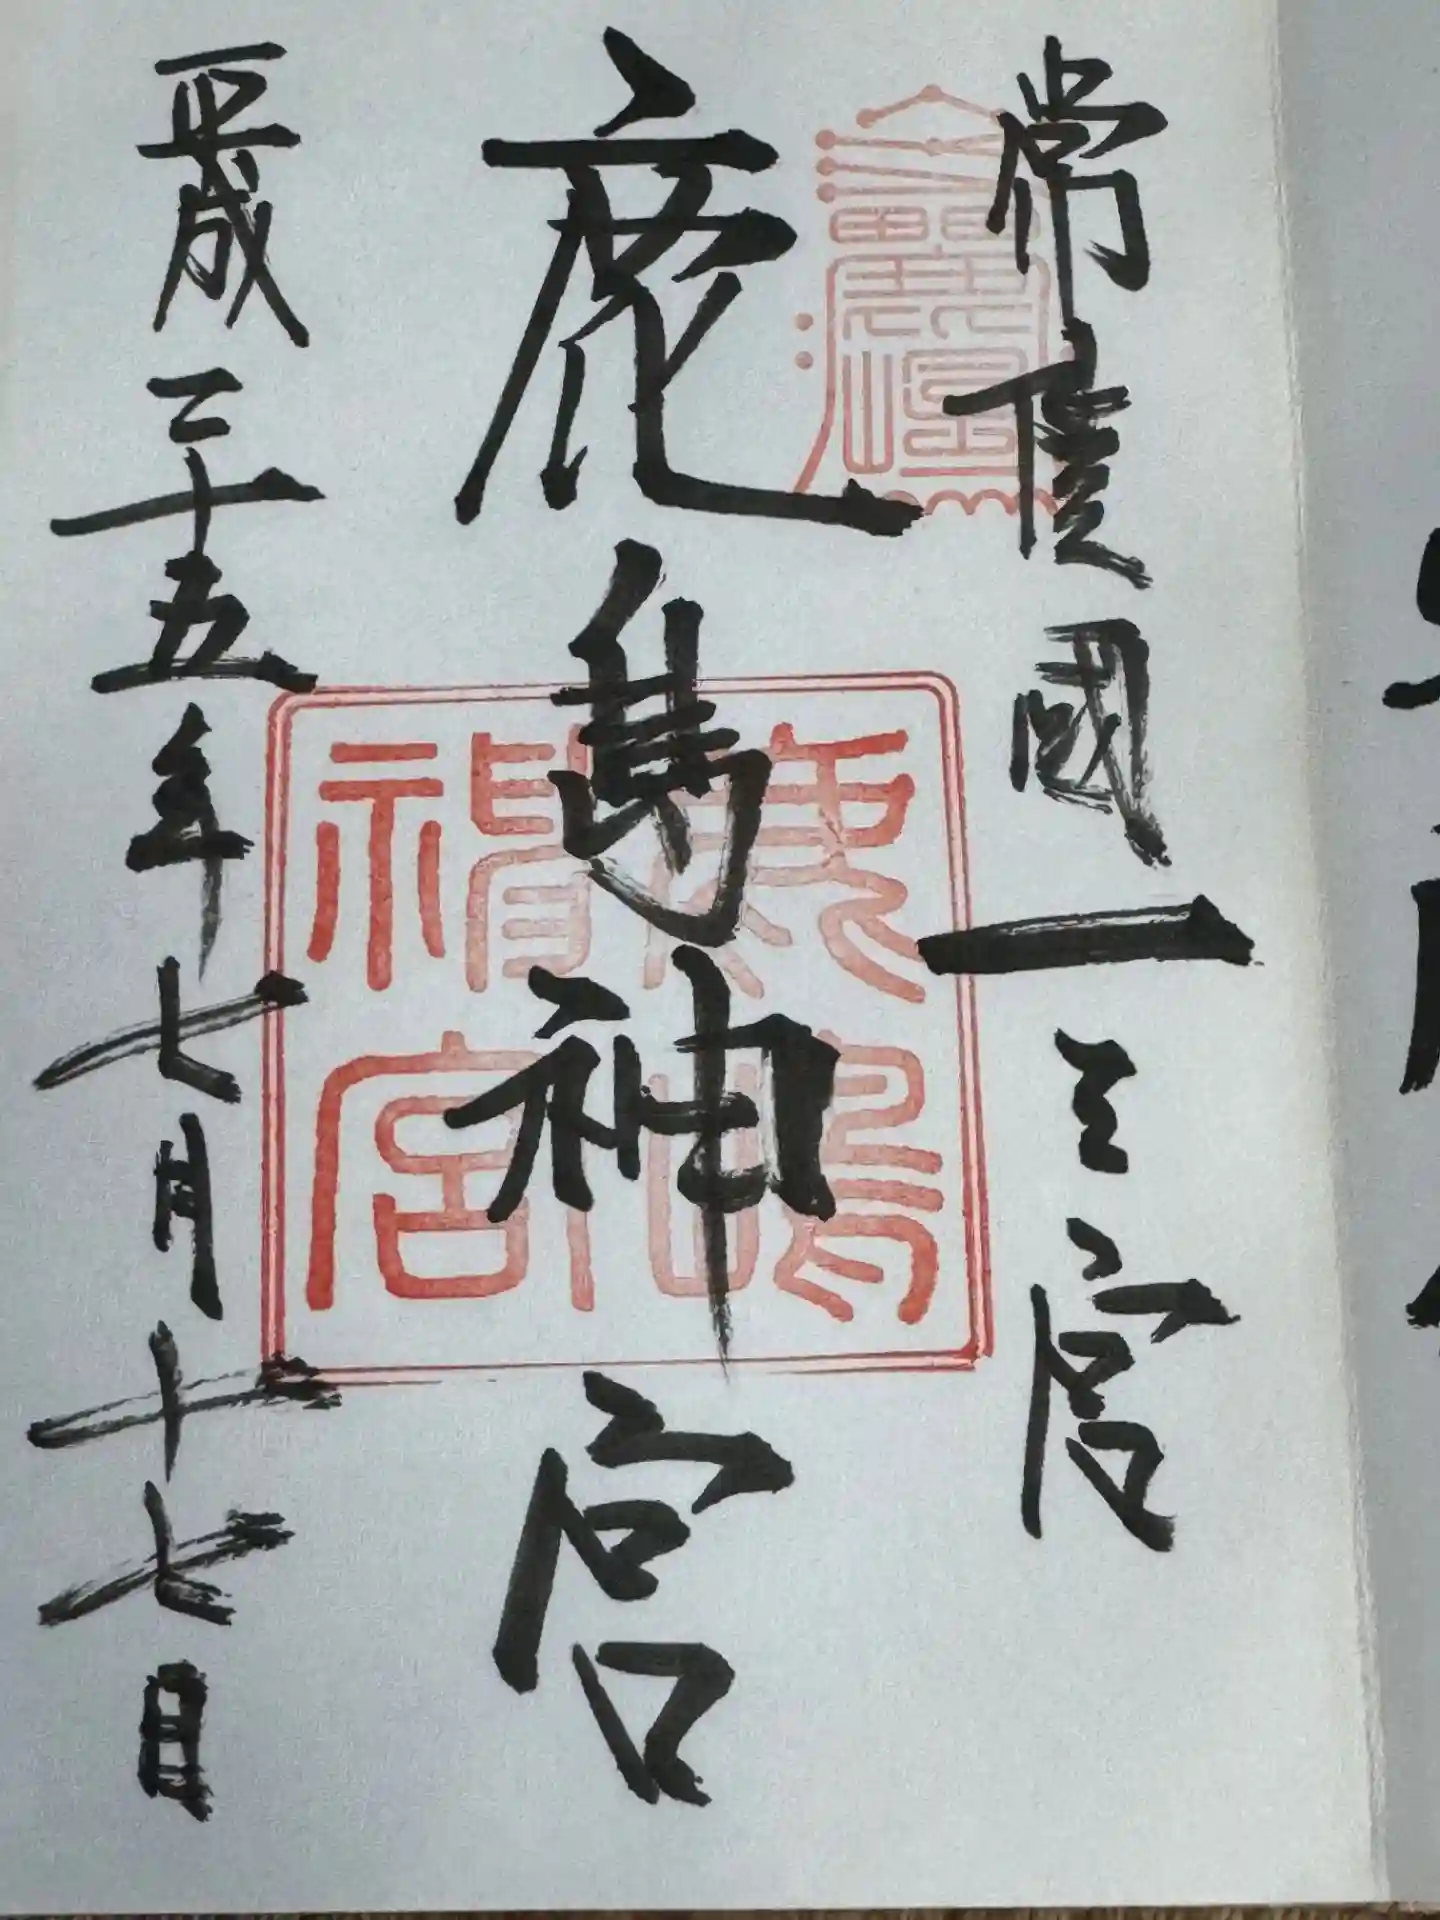 常陸國一之宮
鹿島神宮
平成二十五年七月十七日
鹿嶋神宮